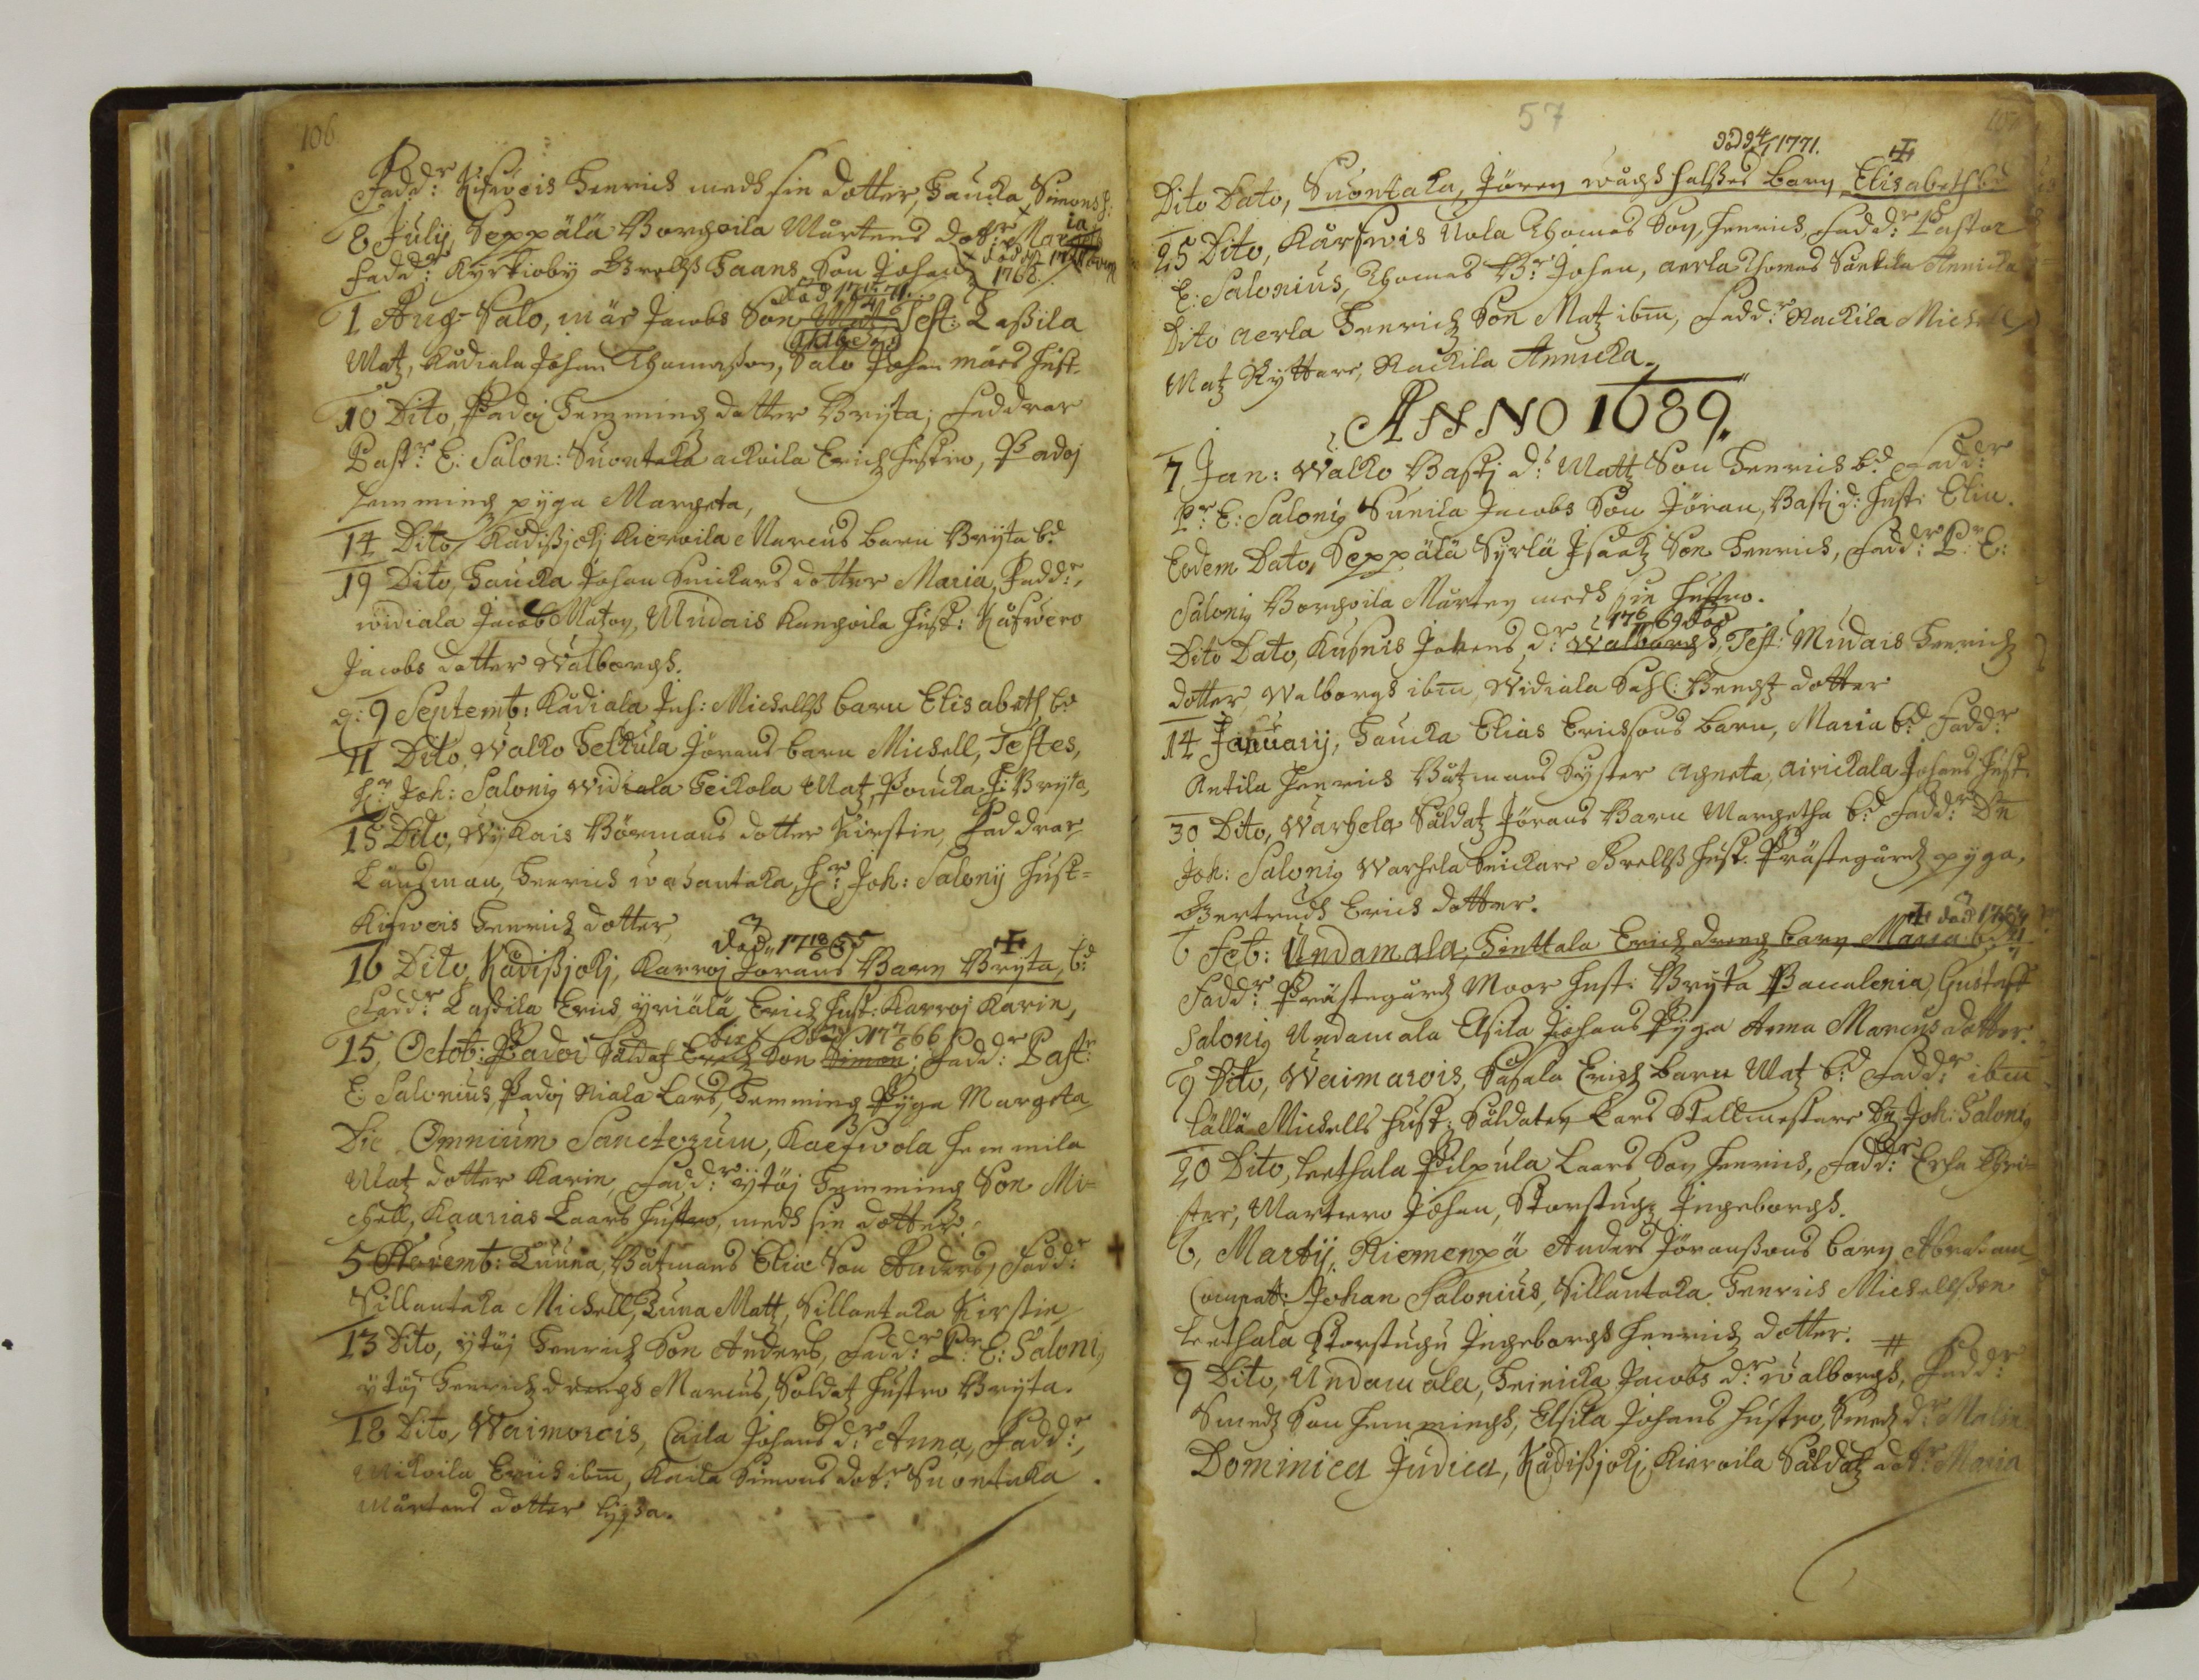 106.
Fadd:r Kiswois Henrich medh sin dotter, Haucka Simons h:
8 Julij, Seppälä Borgoila Mårtens dott:r Maria
Fadd:r Kyrkioby Grells Haans Son Johan
död 17 71.
1 Aug- Salo, mär Jacobs Son Matz, Test: Laßila
Matz, Kådiala Johan Thomasson, Salo Johan märs hust.
10 Dito, Padoj Hemmingz dotter Bryta; Faddrar
Past:r E: Salon: Suontaka ackoila Erichz hustro, Padoj
Hemmingz pyga Margeta,
14 Dito, Kådißjokj Kieroila Marcus barn Bryta b:d
19 Dito, Haucka Johan Snickars dotter Maria, Fadd:r
Widiala Jacob Matzon, Mudais Kangoila hust: Kåfwero
Jacobs dotter Walborgh.
d: 9 Septemb: Kådiala Joh: Michells barn Elisabeth b:d
11 Dito, Walko Heikula Jörans barn Michell, Testes,
H:r Joh: Saloni9 Widiala Heikola Matz, Poucka h: Bryta,
15 Dito, Wykais Börmans dotter Kirstin, Faddrar
Landzman, Henrich wahantaka, H:r Joh: Salonij hust=
Kiswois Henrichz dotter,
död 17 65
16 Dito, Kådißjokj, Karroj Jörans Barn Bryta, b:d
Fadd:r Laßila Erich, yriälä Erichz hust: Karroj Karin,
död 17 66
15, Octob: Padoi Såldat Erichz Son Simon; Fadd:r Past:r
E: Salonius, Padoj Niala Lars, Hemmingz Pyga Margeta
Die Omnium Sanctorum, Kaeswola Hemmila
Matz dotter Karin, Fadd:r ytöj Hemmingz Son Mi=
chell, Kaarias Laars hustro, medh sin dotter.
5 Novemb: Luuna, Båtzmans Eliæ Son Anders, Fadd:r
Sillantaka Michell, Luna Matt, Sillantaka Kirstin
13 Dito, ytöj Henrichz Son Anders, Fadd:r P:r E: Saloni9
ytöj Henrichz drengh Marcus, Soldatz hustro Bryta.
18 Dito, Waimarois, Caila Johans d:r Anna, Fadd:r,
Mikoila Erich ibm, Kaila Simons dot:r Suontaka
Mårtens dotter Lysa.
57
död 1771.
Dito Dato, Suontaka, Jören wåghhalßes barn Elisabeth b:d
25 Dito, Kårfwis Uola Thomas Son, Henrich, Fadd:r Pastor
E: Salonius, Thomas B:r Johan, aerla Thomas Annicka
Dito aerla Henrichz Son Matz ibm, Fadd:r Rackila Michell
Matz Ryttare, Rackila Annicka.
ANNO 1689.
7 Jan: Walko Bastj d:r Matz Son Henrich b:d Fadd:r
P:r E: Saloni9 Sunila Jacobs Son Jöran, Bastj d: hust: Elin.
Eodem Dato, Seppälä Syrlä Jsaakz Son Henrich, Fadd:r P:r E:
Saloni9 Borgoila Mårten medh sin hustro.
69 död
Dito Dato, Kusnis Johans d:r Walborgh, Test: Mudais Henrichz
dotter, Walborgh ibm, Widiala Sahl: Bengtz dotter
14 Januarij, Haucka Elias Erichsons barn, Maria b:d Fadd:r
Antila Henrich Båtzmans Syster Agneta, airickala Johans hust:
30 Dito, Warhela Såldatz Jörans Barn Margetha b:d Fadd:r Dn
Joh: Saloni9 Warhela Snickare Grells hust. Prästegårdz pyga,
Gertrudh Erich dotter.
död 17
6 Feb: Undamala, Hinttala Erichz drengz barn Maria b:d
Fadd:r Prästegårdz Moor hust: Bryta Paccalenia, Gustaff
Saloni9 Undamala Elsila Johans Pyga Anna Marcus dotter.
9 Dito, Waimarois, Sasala Erichz barn Matz b:d Fadd:r ibm
Lällä Michells hust: Såldaten Lars Stallmestare Dn Joh: Saloni9
20 Dito, Leethala Pilpula Laars Son Henrich, Fadd:r Erche Chri=
ster, Marttero Johan, Storstughz Jngeborgh.
6, Martij, Riemenpä Anders Jöranßons barn Abraham
Compat: Johan Salonius, Sillantaka Henrich Michellßon
Leethala Storstugu Jngeborgh Henrichz dotter.
9 Dito, Undamala, Heinicka Jacobs d:r Walborgh, Fadd:r
Smedz Son Hemmingh, Elsila Johans hustro, Smedz d:r Malin
Dominica Judica, Kådißjokj, Kieroila Såldatz dott:r Maria